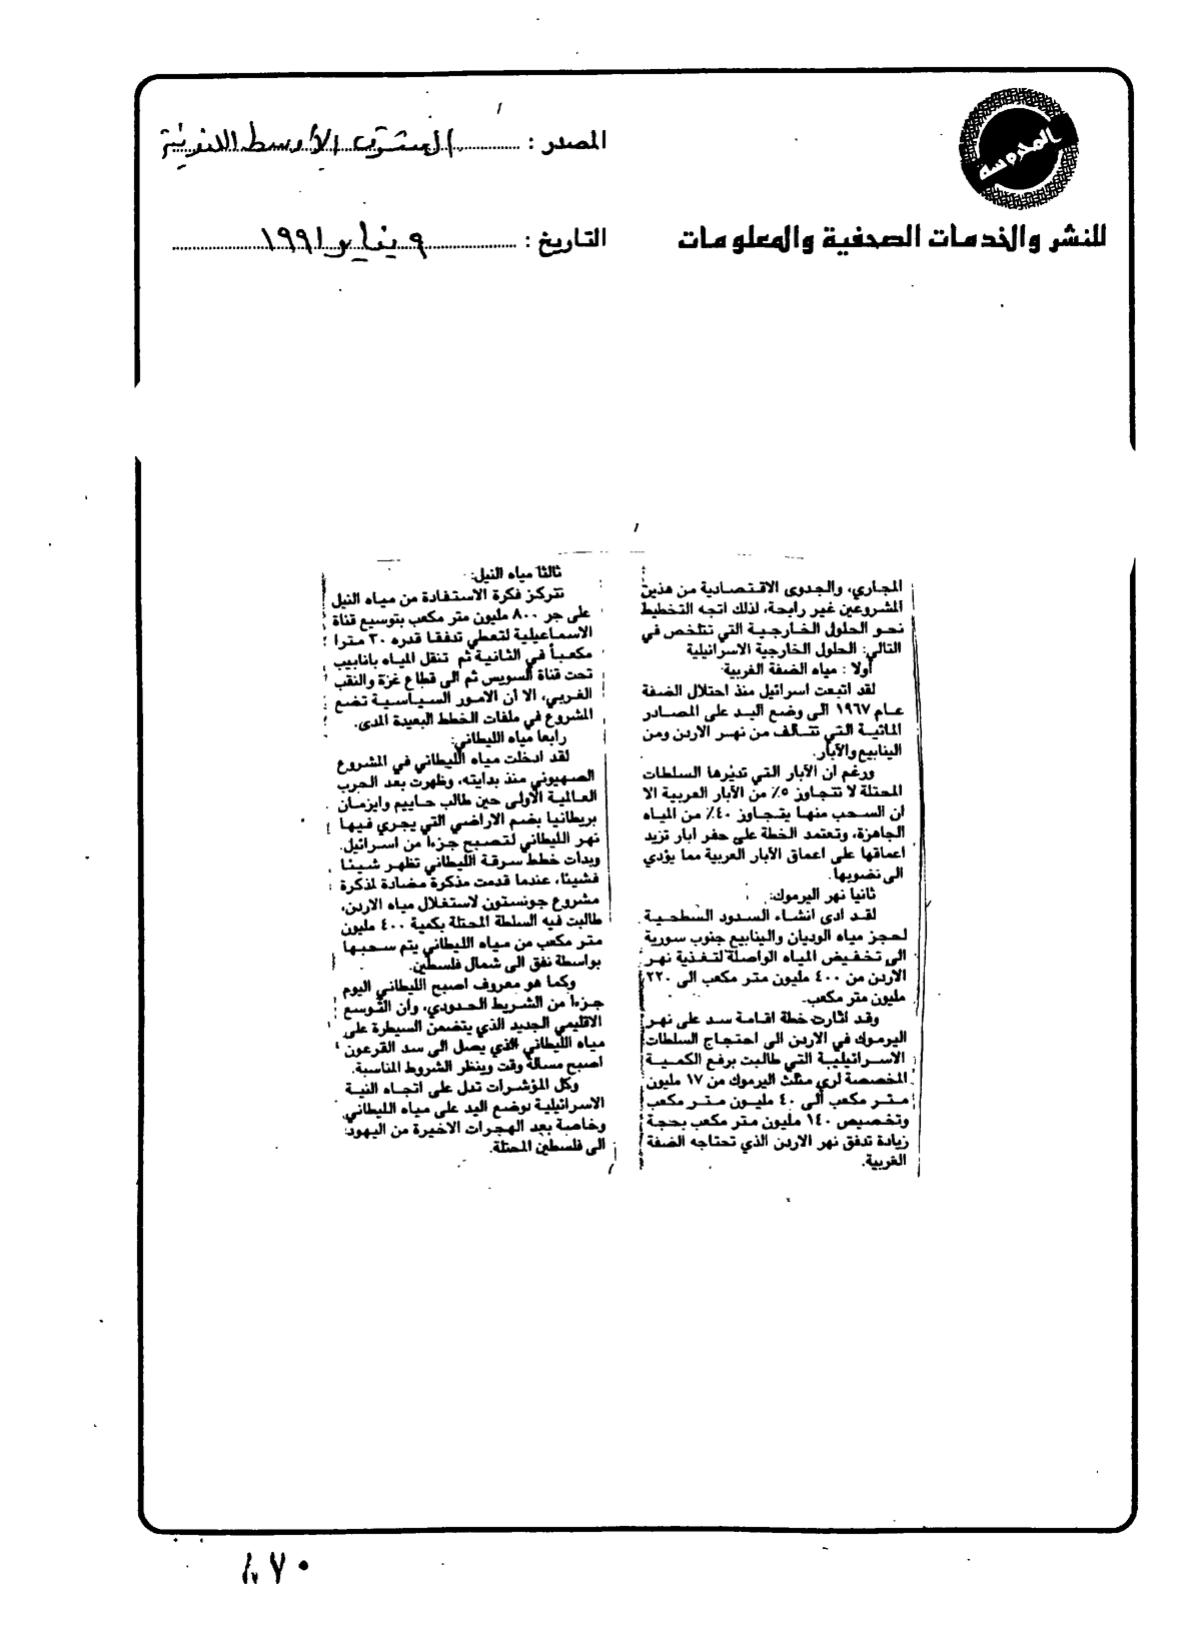 المحروسة
للنشر والخدمات الصحفية والمعلومات
المصدر : الشرق الأوسط اللندنية
التاريخ : ٩ يناير ١٩٩١
المجاري، والجدوى الاقتصادية من هذين
المشروعين غير رابحة، لذلك اتجه التخطيط
نحو الحلول الخارجية التي تتلخص في
التالي: الحلول الخارجية الاسرائيلية
أولا : مياه الضفة الغربية
لقد اتبعت اسرائيل منذ احتلال الضفة
عام ١٩٦٧ الى وضع اليد على المصادر
المائية التي تتالف من نهر الاردن ومن
الينابيع والآبار.
ورغم ان الآبار التي تديرها السلطات
المحتلة لا تتجاوز ٥٪ من الآبار العربية الا
ان السحب منها يتجاوز ٤٠٪ من المياه
الجاهزة، وتعتمد الخطة على حفر ابار تزيد
اعماقها على اعماق الآبار العربية مما يؤدي
الى نضوبها.
ثانيا نهر اليرموك:
لقد ادى انشاء السدود السطحية
لحجز مياه الوديان والينابيع جنوب سورية
الى تخفيض المياه الواصلة لتغذية نهر
الاردن من ٤٠٠ مليون متر مكعب الى ٢٢٠
مليون متر مكعب.
وقد اثارت خطة اقامة سد على نهر
اليرموك في الاردن الى احتجاج السلطات
الاسرائيلية التي طالبت برفع الكمية
المخصصة لري مثلث اليرموك من ١٧ مليون
متر مكعب الى ٤٠ مليون متر مكعب
وتخصيص ١٤٠ مليون متر مكعب بحجة
زيادة تدفق نهر الاردن الذي تحتاجه الضفة
الغربية.
ثالثا مياه النيل:
تتركز فكرة الاستفادة من مياه النيل
على جر ٨٠٠ مليون متر مكعب بتوسيع قناة
الاسماعيلية لتعطي تدفقا قدره ٣٠ مترا
مكعبا في الثانية ثم تنقل المياه بانابيب
تحت قناة السويس ثم الى قطاع غزة والنقب
الغربي، الا ان الامور السياسية تضع
المشروع في ملفات الخطط البعيدة المدى.
رابعا مياه الليطاني:
لقد ادخلت مياه الليطاني في المشروع
الصهيوني منذ بدايته، وظهرت بعد الحرب
العالمية الاولى حين طالب حاييم وايزمان
بريطانيا بضم الاراضي التي يجري فيها
نهر الليطاني لتصبح جزءا من اسرائيل.
وبدات خطط سرقة الليطاني تظهر شيئا
فشيئا، عندما قدمت مذكرة مضادة لمذكرة
مشروع جونستون لاستغلال مياه الاردن،
طالبت فيه السلطة المحتلة بكمية ٤٠٠ مليون
متر مكعب من مياه الليطاني يتم سحبها
بواسطة نفق الى شمال فلسطين.
وكما هو معروف اصبح الليطاني اليوم
جزءا من الشريط الحدودي، وان التوسع
الاقليمي الجديد الذي يتضمن السيطرة على
مياه الليطاني الذي يصل الى سد القرعون
اصبح مسالة وقت وينظر الشروط المناسبة.
وكل المؤشرات تدل على اتجاه النية
الاسرائيلية لوضع اليد على مياه الليطاني
وخاصة بعد الهجرات الاخيرة من اليهود
الى فلسطين المحتلة.